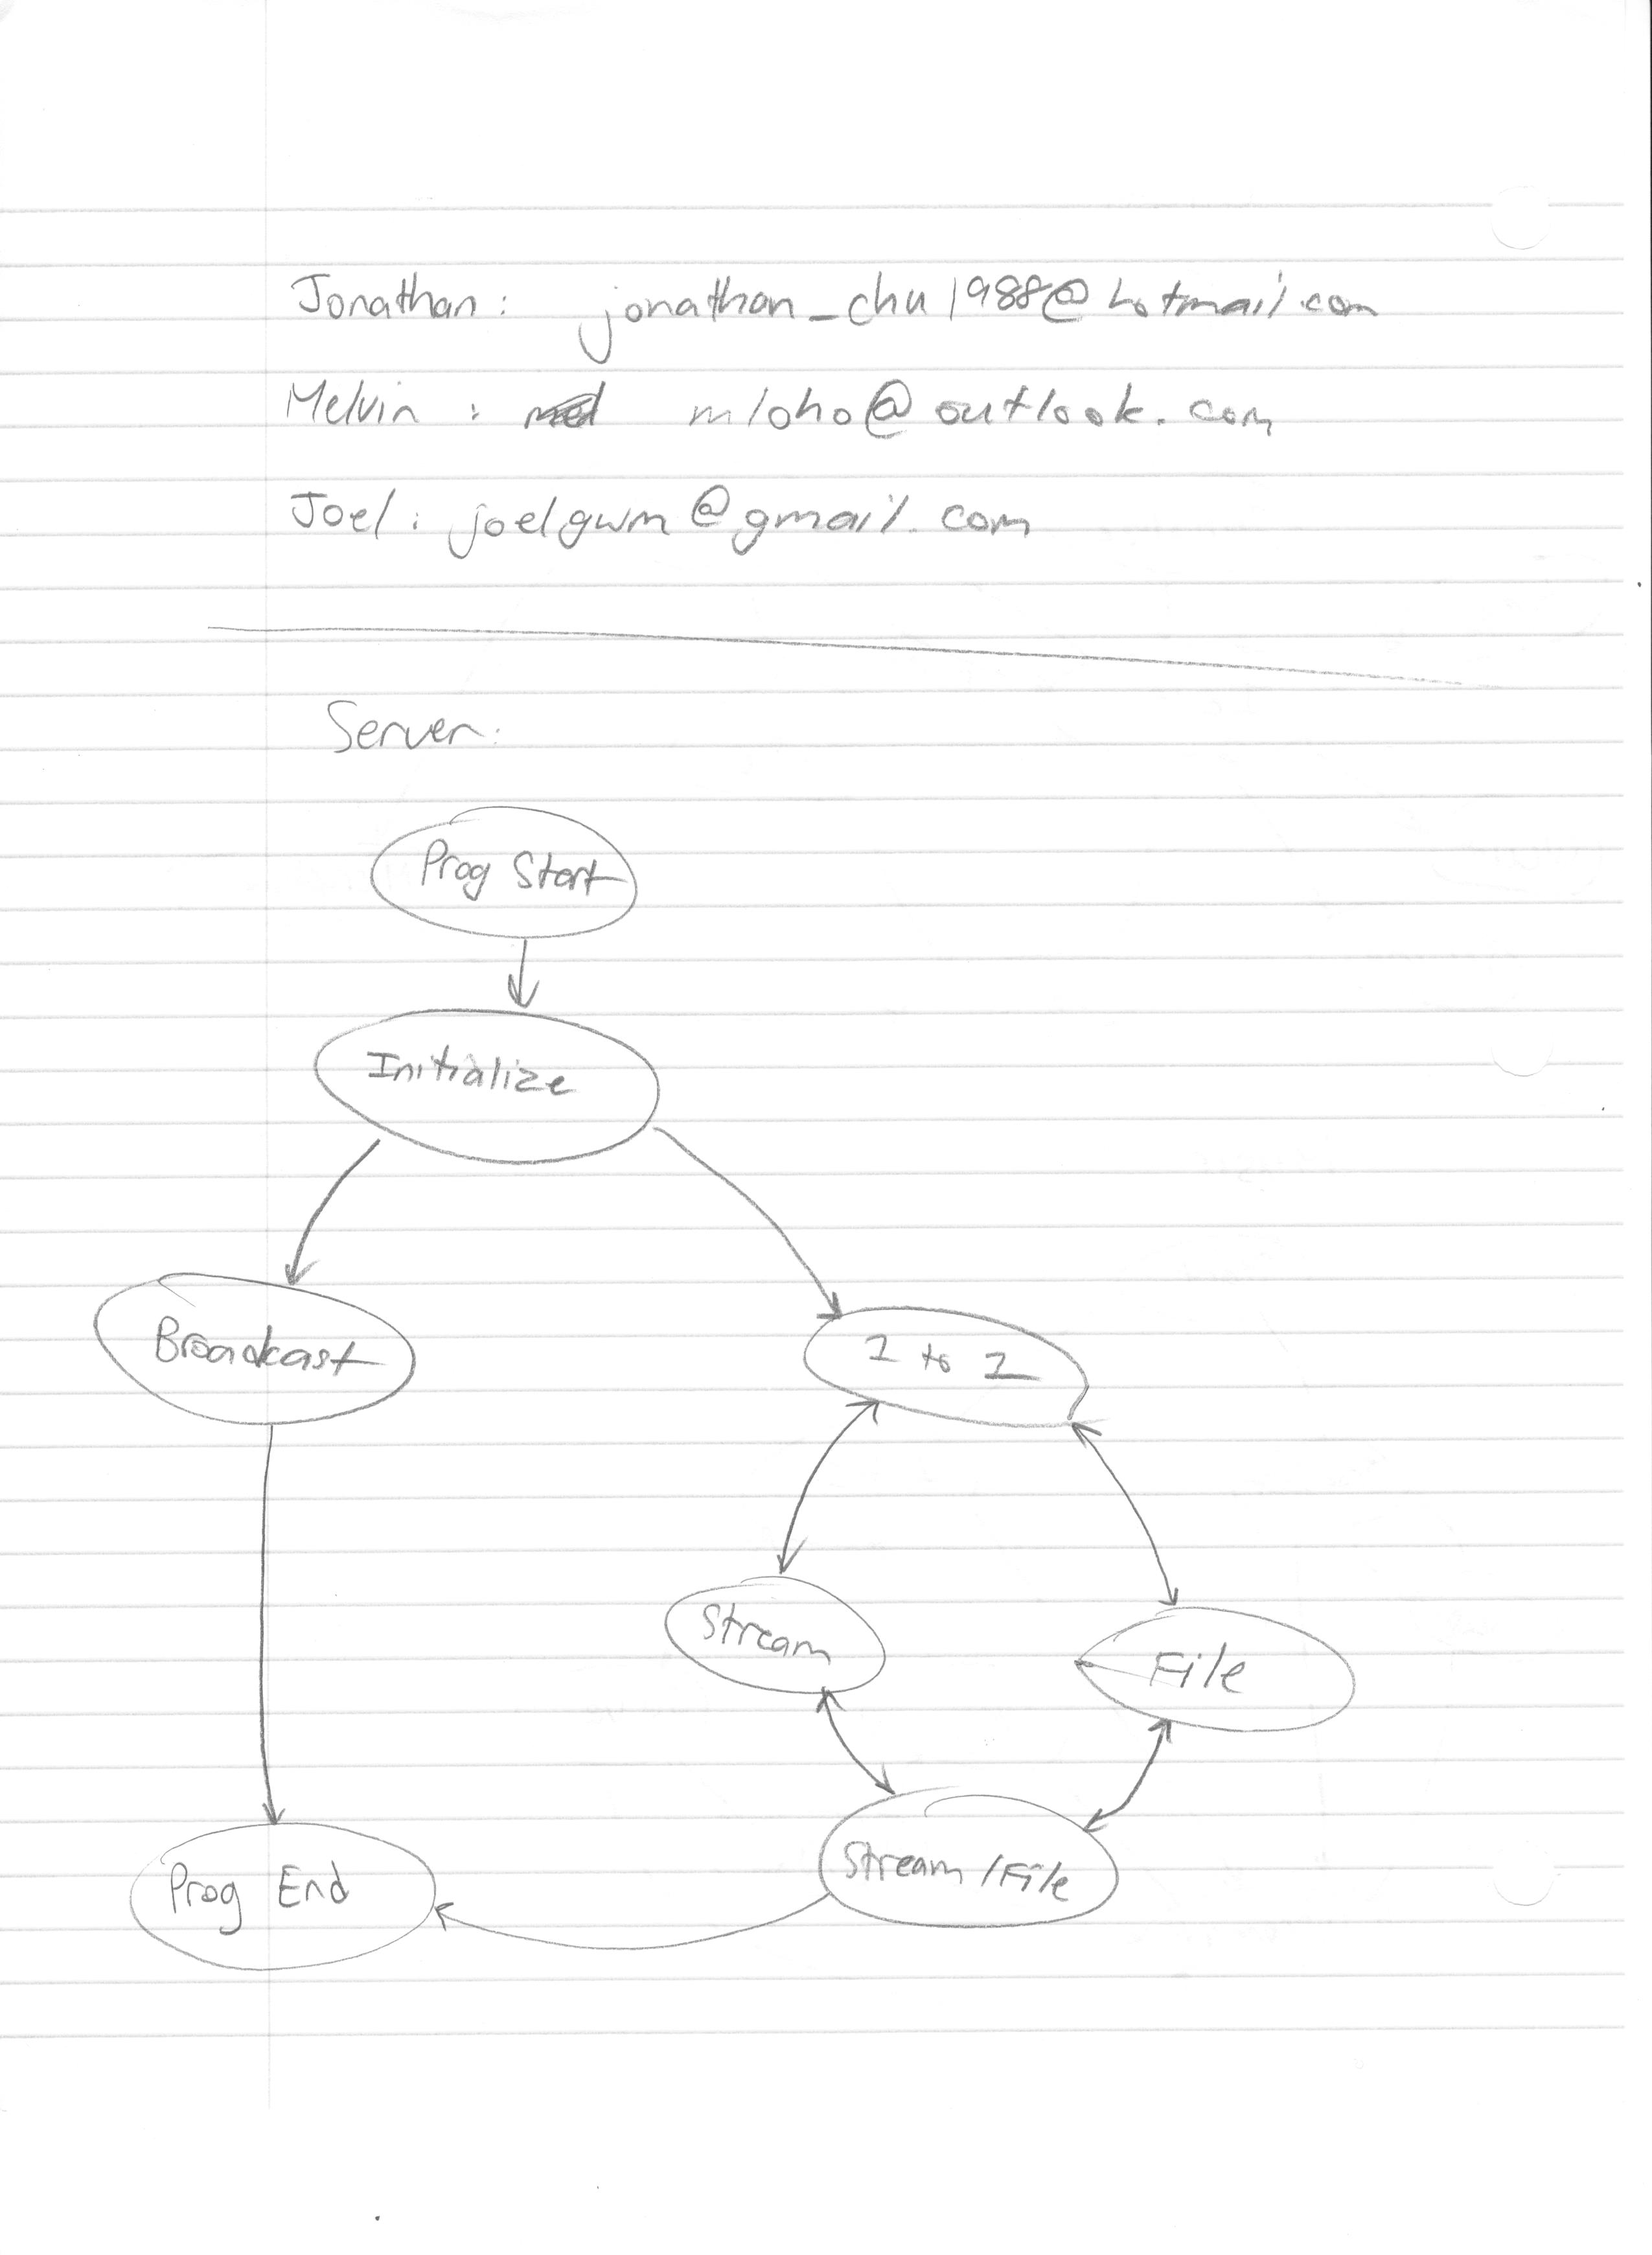 Jonathan: jonathan_chu1988@hotmail.com
Melvin: mloho@outlook.com
Joel: joelgwm@gmail.com
Server:
Prog Start
Initialize
Broadcast
1 to 1
Stream
File
Stream/File
Prog End